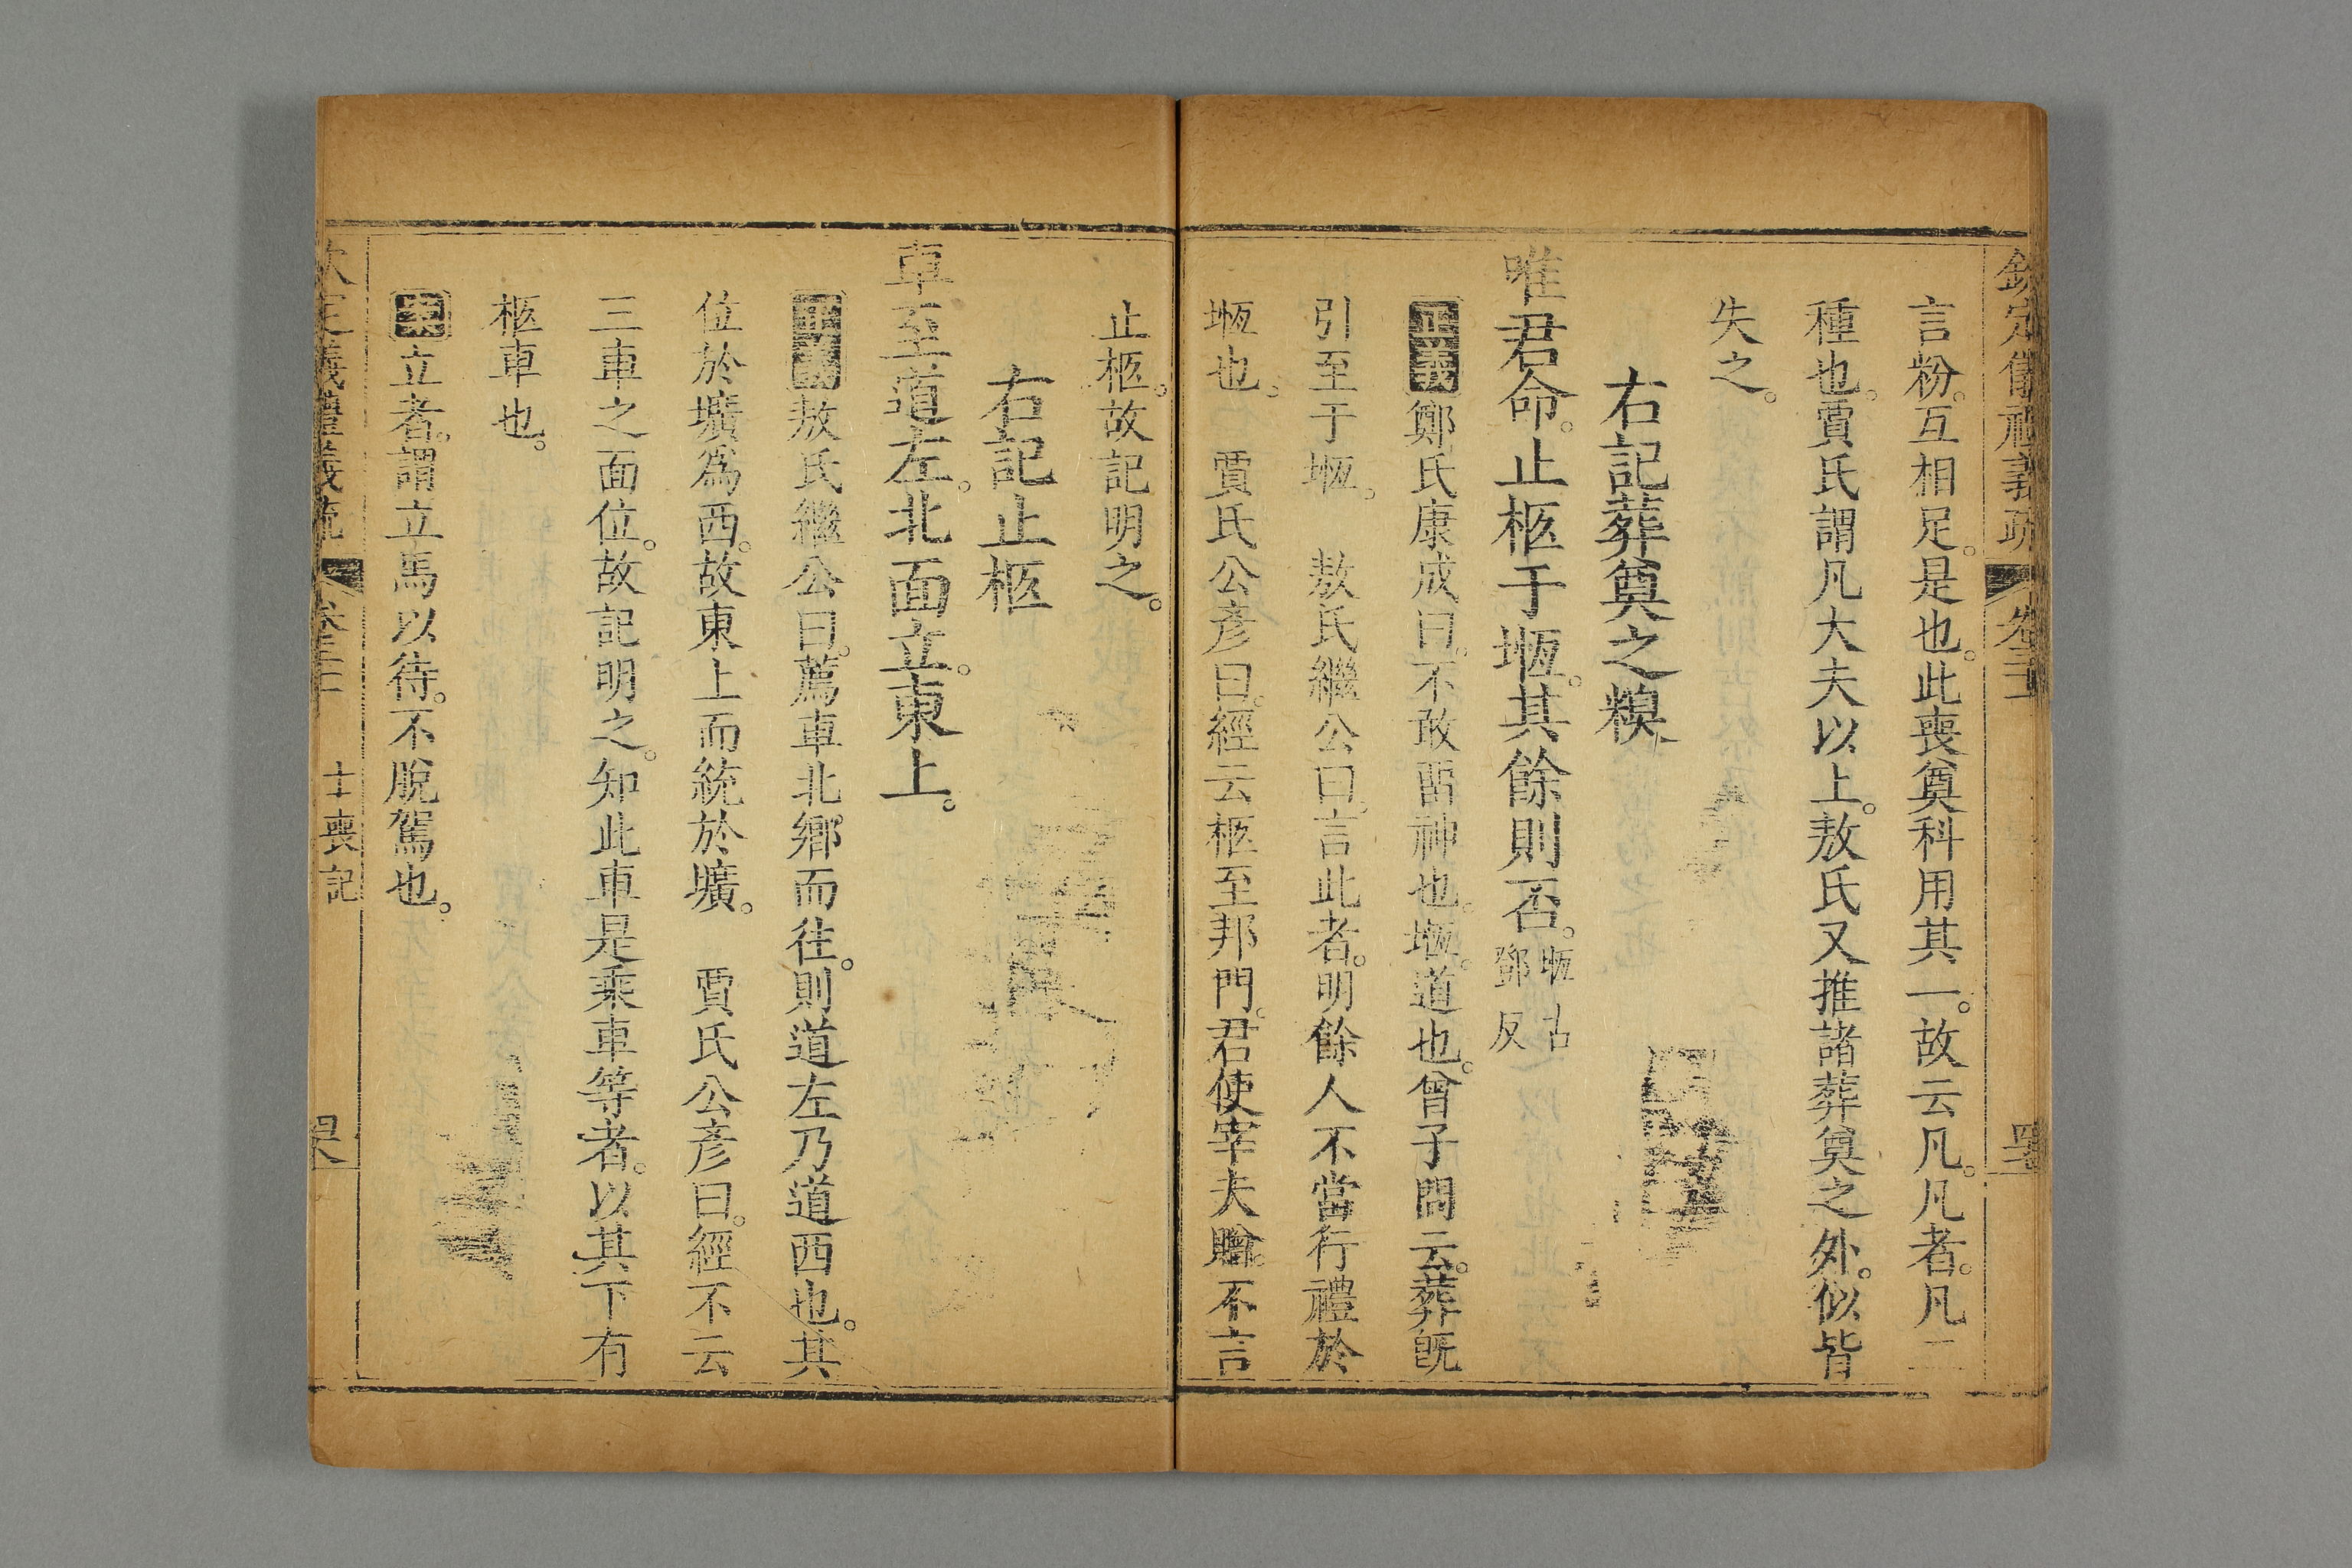 欽定儀禮義疏 卷三十二
言粉。互相足。是也。此喪奠科用其一。故云凡。凡者。凡二
種也。賈氏謂凡大夫以上。敖氏又推諸葬奠之外。似皆
失之。
右記葬奠之糗
唯君命。止柩于堩。其餘則否。堩古鄧反
正義鄭氏康成曰。不敢畱神也。堩。道也。曾子問云。葬旣
引至于堩。 敖氏繼公曰。言此者。明餘人不當行禮於
堩也。 賈氏公彥曰。經云柩至邦門。君使宰夫贈。不言
止柩。故記明之。
右記止柩
車至道左。北面立。東上。
正義敖氏繼公曰。薦車北鄉而往。則道左乃道西也。其
位於壙爲西。故東上而統於壙。 賈氏公彥曰。經不云
三車之面位。故記明之。知此車是乘車等者。以其下有
柩車也。
案立者。謂立馬以待。不脫駕也。
欽定儀禮義疏 卷三十二 士喪記